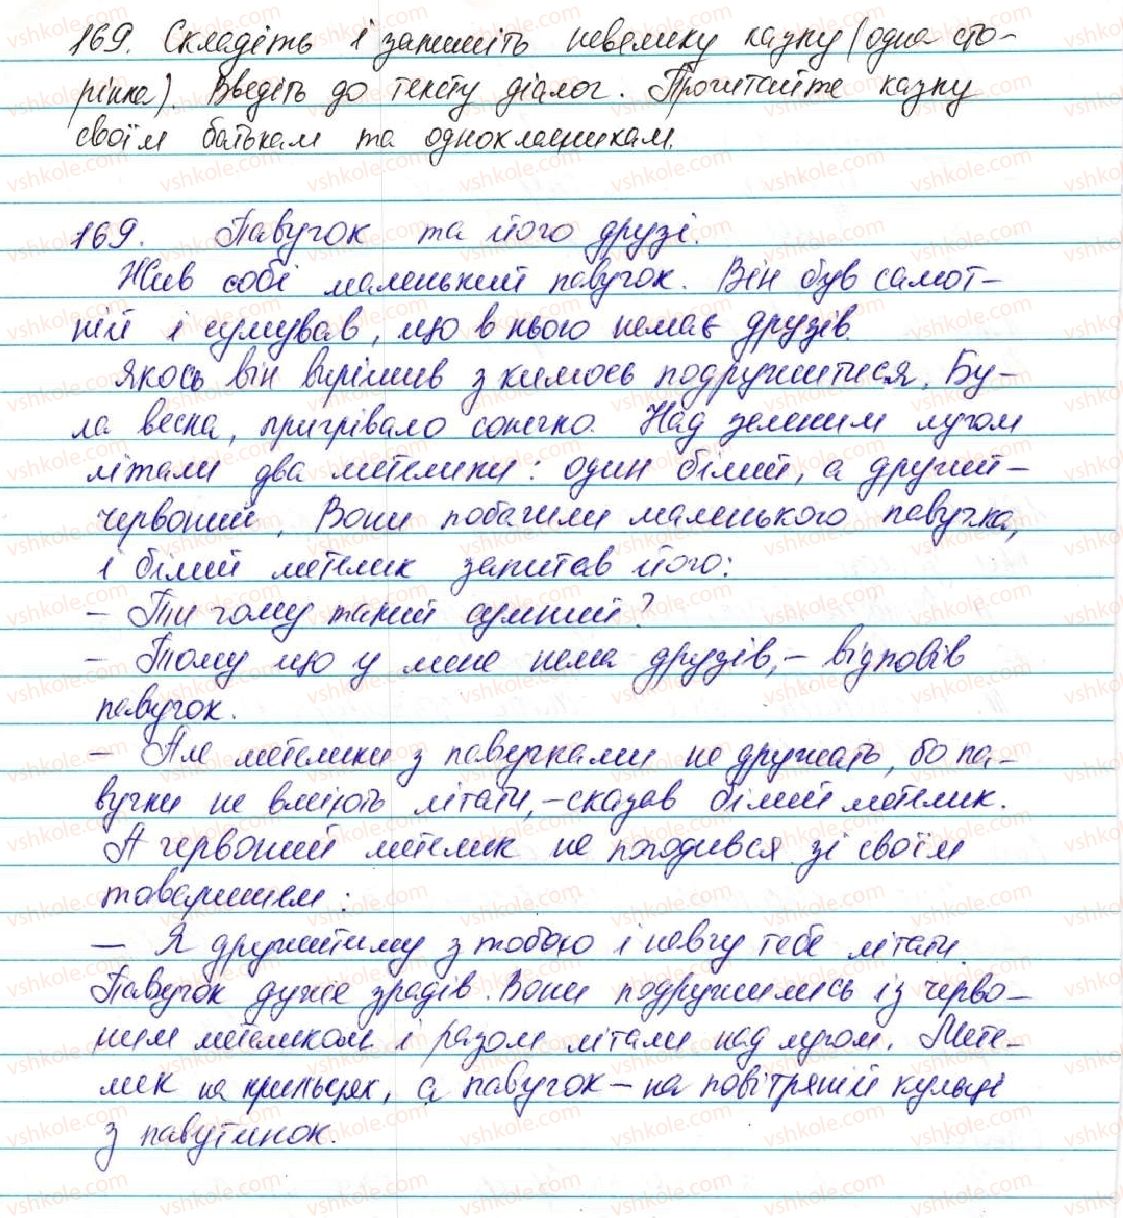 169. Складіть і запишіть невелику казку (одна сто-
рінка). Введіть до тексту діалог. Прочитайте казку
своїм батькам та однокласникам.
169. Павучок та його друзі.
Жив собі маленький павучок. Він був самот-
ній і сумував, що в нього немає друзів.
Якось він вирішив з кимось подружитися. Бу-
ла весна, пригрівало сонечко. Над зеленим лугом
літали два метелики: один білий, а другий -
червоний. Вони побачили маленького павучка,
і білий метелик запитав його:
- Ти чому такий сумний?
- Тому що у мене нема друзів, - відповів
павучок.
- Але метелики з павучками не дружать, бо па-
вучки не вміють літати, - сказав білий метелик.
А червоний метелик не погодився зі своїм
товаришем:
- Я дружитиму з тобою і навчу тебе літати.
Павучок дуже зрадів. Вони подружились із черво-
ним метеликом і разом літали над лугом. Мете-
лик на крильцях, а павучок - на повітряній кульці
з павутинок.